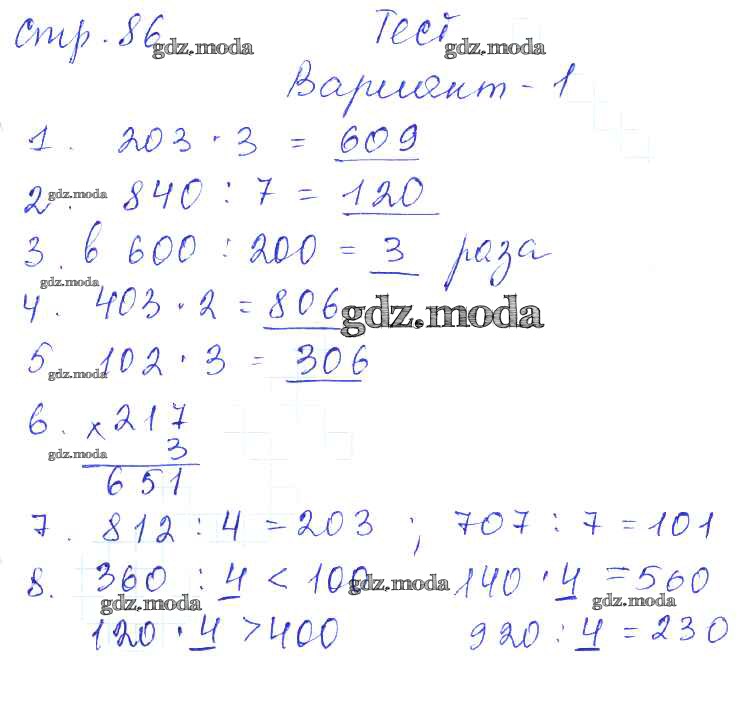 Стр. 86 Тест
gdz.moda
Вариант - 1
1. 203 · 3 = 609
2. 840 : 7 = 120
gdz.moda
3. в 600 : 200 = 3 раза
gdz.moda
4. 403 · 2 = 806
gdz.moda
5 102 · 3 = 306
gdz.moda
6. × 217
3
gdz.moda
651
7. 812 : 4 = 203 ; 707 : 7 = 101
8. 360 : 4 < 100 140 · 4 = 560
gdz.moda
gdz.moda gdz.moda
120 · 4 > 400 920 : 4 = 230